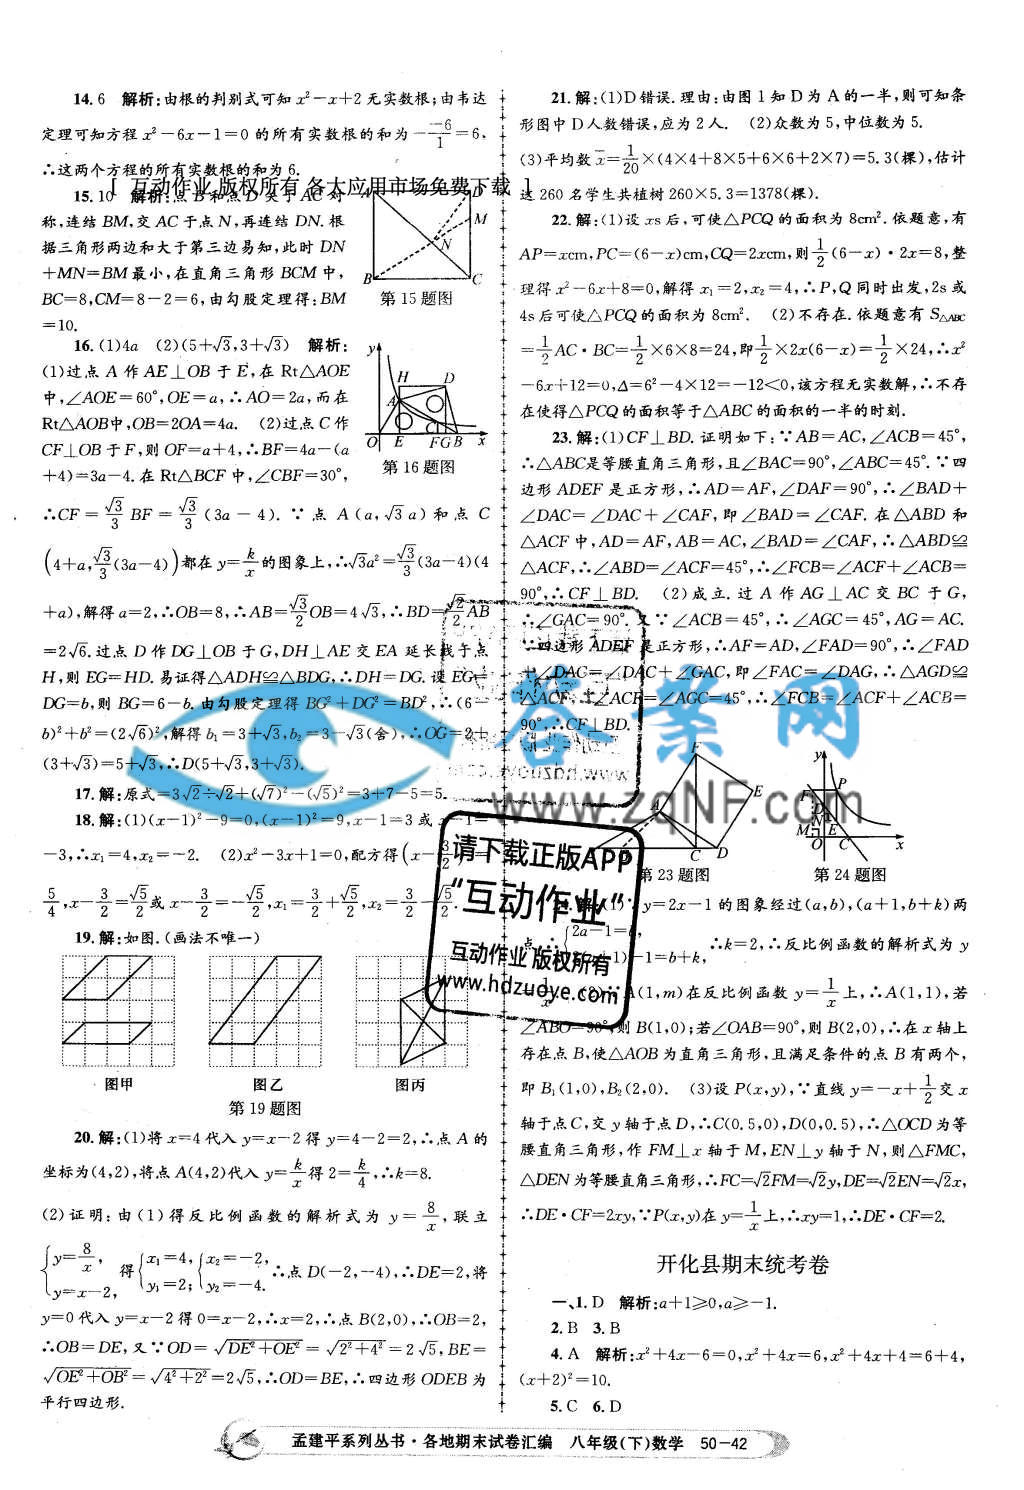 14. 6 解析:由根的判别式可知 x²-x+2 无实数根;由韦达
定理可知方程 x²-6x-1=0 的所有实数根的和为 -\frac{-6}{1}=6,
∴这两个方程的所有实数根的和为 6.
[ 互动作业 版权所有 各大应用市场免费下载 ]
15. 10 解析:点 B 和点 D 关于 AC 对
称,连结 BM,交 AC 于点 N,再连结 DN. 根
据三角形两边和大于第三边易知,此时 DN
+MN=BM 最小,在直角三角形 BCM 中,
BC=8,CM=8-2=6,由勾股定理得:BM
=10.
D
M
N
B
C
第 15 题图
16. (1)4a (2)(5+√3,3+√3) 解析:
(1)过点 A 作 AE⊥OB 于 E,在 Rt△AOE
中,∠AOE=60°,OE=a,∴AO=2a,而在
Rt△AOB中,OB=2OA=4a. (2)过点 C 作
CF⊥OB 于 F,则 OF=a+4,∴BF=4a-(a
+4)=3a-4. 在 Rt△BCF 中,∠CBF=30°,
y
H D
A
C
O E FG B x
第 16 题图
∴CF=\frac{√3}{3}BF=\frac{√3}{3}(3a-4). ∵点 A(a,√3a)和点 C
(4+a,\frac{√3}{3}(3a-4))都在 y=\frac{k}{x}的图象上,∴√3a²=\frac{√3}{3}(3a-4)(4
+a),解得 a=2,∴OB=8,∴AB=\frac{√3}{2}OB=4√3,∴BD=\frac{√2}{2}AB
=2√6. 过点 D 作 DG⊥OB 于 G,DH⊥AE 交 EA 延长线于点
H,则 EG=HD. 易证得△ADH≌△BDG,∴DH=DG. 设 EG=
DG=b,则 BG=6-b. 由勾股定理得 BG²+DG²=BD²,∴(6-
b)²+b²=(2√6)²,解得 b₁=3+√3,b₂=3-√3(舍),∴OG=2+
(3+√3)=5+√3,∴D(5+√3,3+√3).
17. 解:原式=3√2÷√2+(√7)²-(√5)²=3+7-5=5.
18. 解:(1)(x-1)²-9=0,(x-1)²=9,x-1=3 或 x-1=
-3,∴x₁=4,x₂=-2. (2)x²-3x+1=0,配方得(x-\frac{3}{2})²=
\frac{5}{4},x-\frac{3}{2}=\frac{√5}{2}或 x-\frac{3}{2}=-\frac{√5}{2},x₁=\frac{3}{2}+\frac{√5}{2},x₂=\frac{3}{2}-\frac{√5}{2}.
19. 解:如图.(画法不唯一)
图甲 图乙 图丙
第 19 题图
20. 解:(1)将 x=4 代入 y=x-2 得 y=4-2=2,∴点 A 的
坐标为(4,2),将点 A(4,2)代入 y=\frac{k}{x}得 2=\frac{k}{4},∴k=8.
(2)证明:由(1)得反比例函数的解析式为 y=\frac{8}{x},联立
{y=\frac{8}{x}, y=x-2, 得{x₁=4, y₁=2; {x₂=-2, y₂=-4. ∴点 D(-2,-4),∴DE=2,将
y=0 代入 y=x-2 得 0=x-2,∴x=2,∴点 B(2,0),∴OB=2,
∴OB=DE,又∵OD=√(DE²+OE²)=√(2²+4²)=2√5,BE=
√(OE²+OB²)=√(4²+2²)=2√5,∴OD=BE,∴四边形 ODEB 为
平行四边形.
21. 解:(1)D 错误. 理由:由图 1 知 D 为 A 的一半,则可知条
形图中 D 人数错误,应为 2 人. (2)众数为 5,中位数为 5.
(3)平均数 x̄=\frac{1}{20}×(4×4+8×5+6×6+2×7)=5.3(棵),估计
这 260 名学生共植树 260×5.3=1378(棵).
22. 解:(1)设 xs 后,可使△PCQ 的面积为 8cm². 依题意,有
AP=xcm,PC=(6-x)cm,CQ=2xcm,则\frac{1}{2}(6-x)·2x=8,整
理得 x²-6x+8=0,解得 x₁=2,x₂=4,∴P,Q 同时出发,2s 或
4s 后可使△PCQ 的面积为 8cm². (2)不存在. 依题意有 S△ABC
=\frac{1}{2}AC·BC=\frac{1}{2}×6×8=24,即\frac{1}{2}×2x(6-x)=\frac{1}{2}×24,∴x²
-6x+12=0,Δ=6²-4×12=-12<0,该方程无实数解,∴不存
在使得△PCQ 的面积等于△ABC 的面积的一半的时刻.
23. 解:(1)CF⊥BD. 证明如下:∵AB=AC,∠ACB=45°,
∴△ABC是等腰直角三角形,且∠BAC=90°,∠ABC=45°. ∵四
边形 ADEF 是正方形,∴AD=AF,∠DAF=90°,∴∠BAD+
∠DAC=∠DAC+∠CAF,即∠BAD=∠CAF. 在△ABD 和
△ACF 中,AD=AF,AB=AC,∠BAD=∠CAF,∴△ABD≌
△ACF,∴∠ABD=∠ACF=45°,∴∠FCB=∠ACF+∠ACB=
90°,∴CF⊥BD. (2)成立. 过 A 作 AG⊥AC 交 BC 于 G,
∴∠GAC=90°. 又∵∠ACB=45°,∴∠AGC=45°,AG=AC.
∵四边形 ADEF 是正方形,∴AF=AD,∠FAD=90°,∴∠FAD
+∠DAC=∠DAC+∠GAC,即∠FAC=∠DAG,∴△AGD≌
△ACF,∴∠ACF=∠AGC=45°,∴∠FCB=∠ACF+∠ACB=
90°,∴CF⊥BD.
答案网
www.zqNF.com
F
A
E
C D
第 23 题图
y
F P
D
N
M E
O C x
第 24 题图
请下载正版APP
“互动作业”
互动作业 版权所有
www.hdzuoye.com
y=2x-1 的图象经过(a,b),(a+1,b+k)两
点,∴{2a-1=b, 2(a+1)-1=b+k, ∴k=2,∴反比例函数的解析式为 y
A(1,m)在反比例函数 y=\frac{1}{x}上,∴A(1,1),若
∠ABO=90°,则 B(1,0);若∠OAB=90°,则 B(2,0),∴在 x 轴上
存在点 B,使△AOB 为直角三角形,且满足条件的点 B 有两个,
即 B₁(1,0),B₂(2,0). (3)设 P(x,y),∵直线 y=-x+\frac{1}{2}交 x
轴于点 C,交 y 轴于点 D,∴C(0.5,0),D(0,0.5),∴△OCD 为等
腰直角三角形,作 FM⊥x 轴于 M,EN⊥y 轴于 N,则△FMC,
△DEN 为等腰直角三角形,∴FC=√2FM=√2y,DE=√2EN=√2x,
∴DE·CF=2xy,∵P(x,y)在 y=\frac{1}{x}上,∴xy=1,∴DE·CF=2.
开化县期末统考卷
一、1. D 解析:a+1≥0,a≥-1.
2. B 3. B
4. A 解析:x²+4x-6=0,x²+4x=6,x²+4x+4=6+4,
(x+2)²=10.
5. C 6. D
孟建平系列丛书·各地期末试卷汇编 八年级(下)数学 50-42